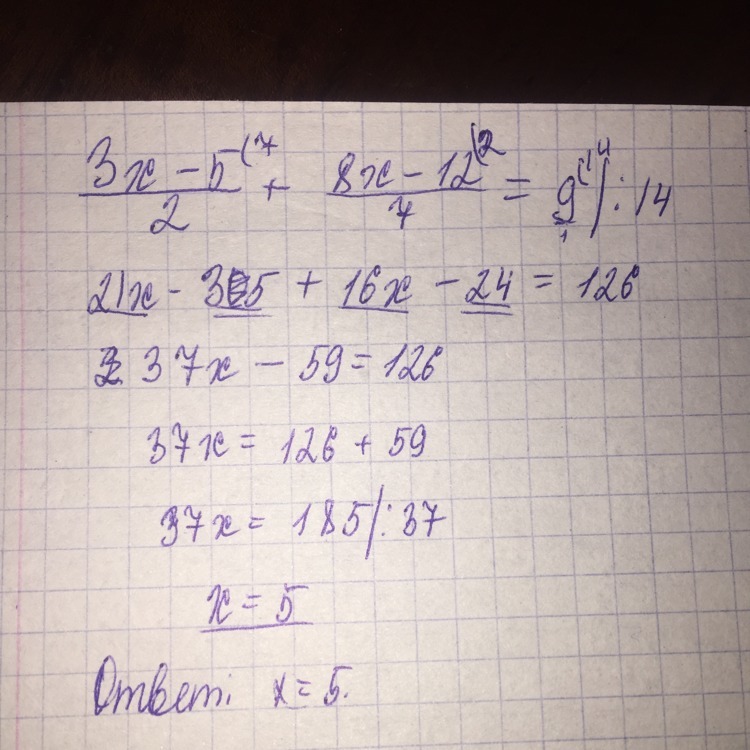 (3x - 5)/2 (7 + (8x - 12)/7 (2 = 9/1 (14 | : 14
21x - 35 + 16x - 24 = 126
37x - 59 = 126
37x = 126 + 59
37x = 185 | : 37
x = 5
Ответ: x = 5.